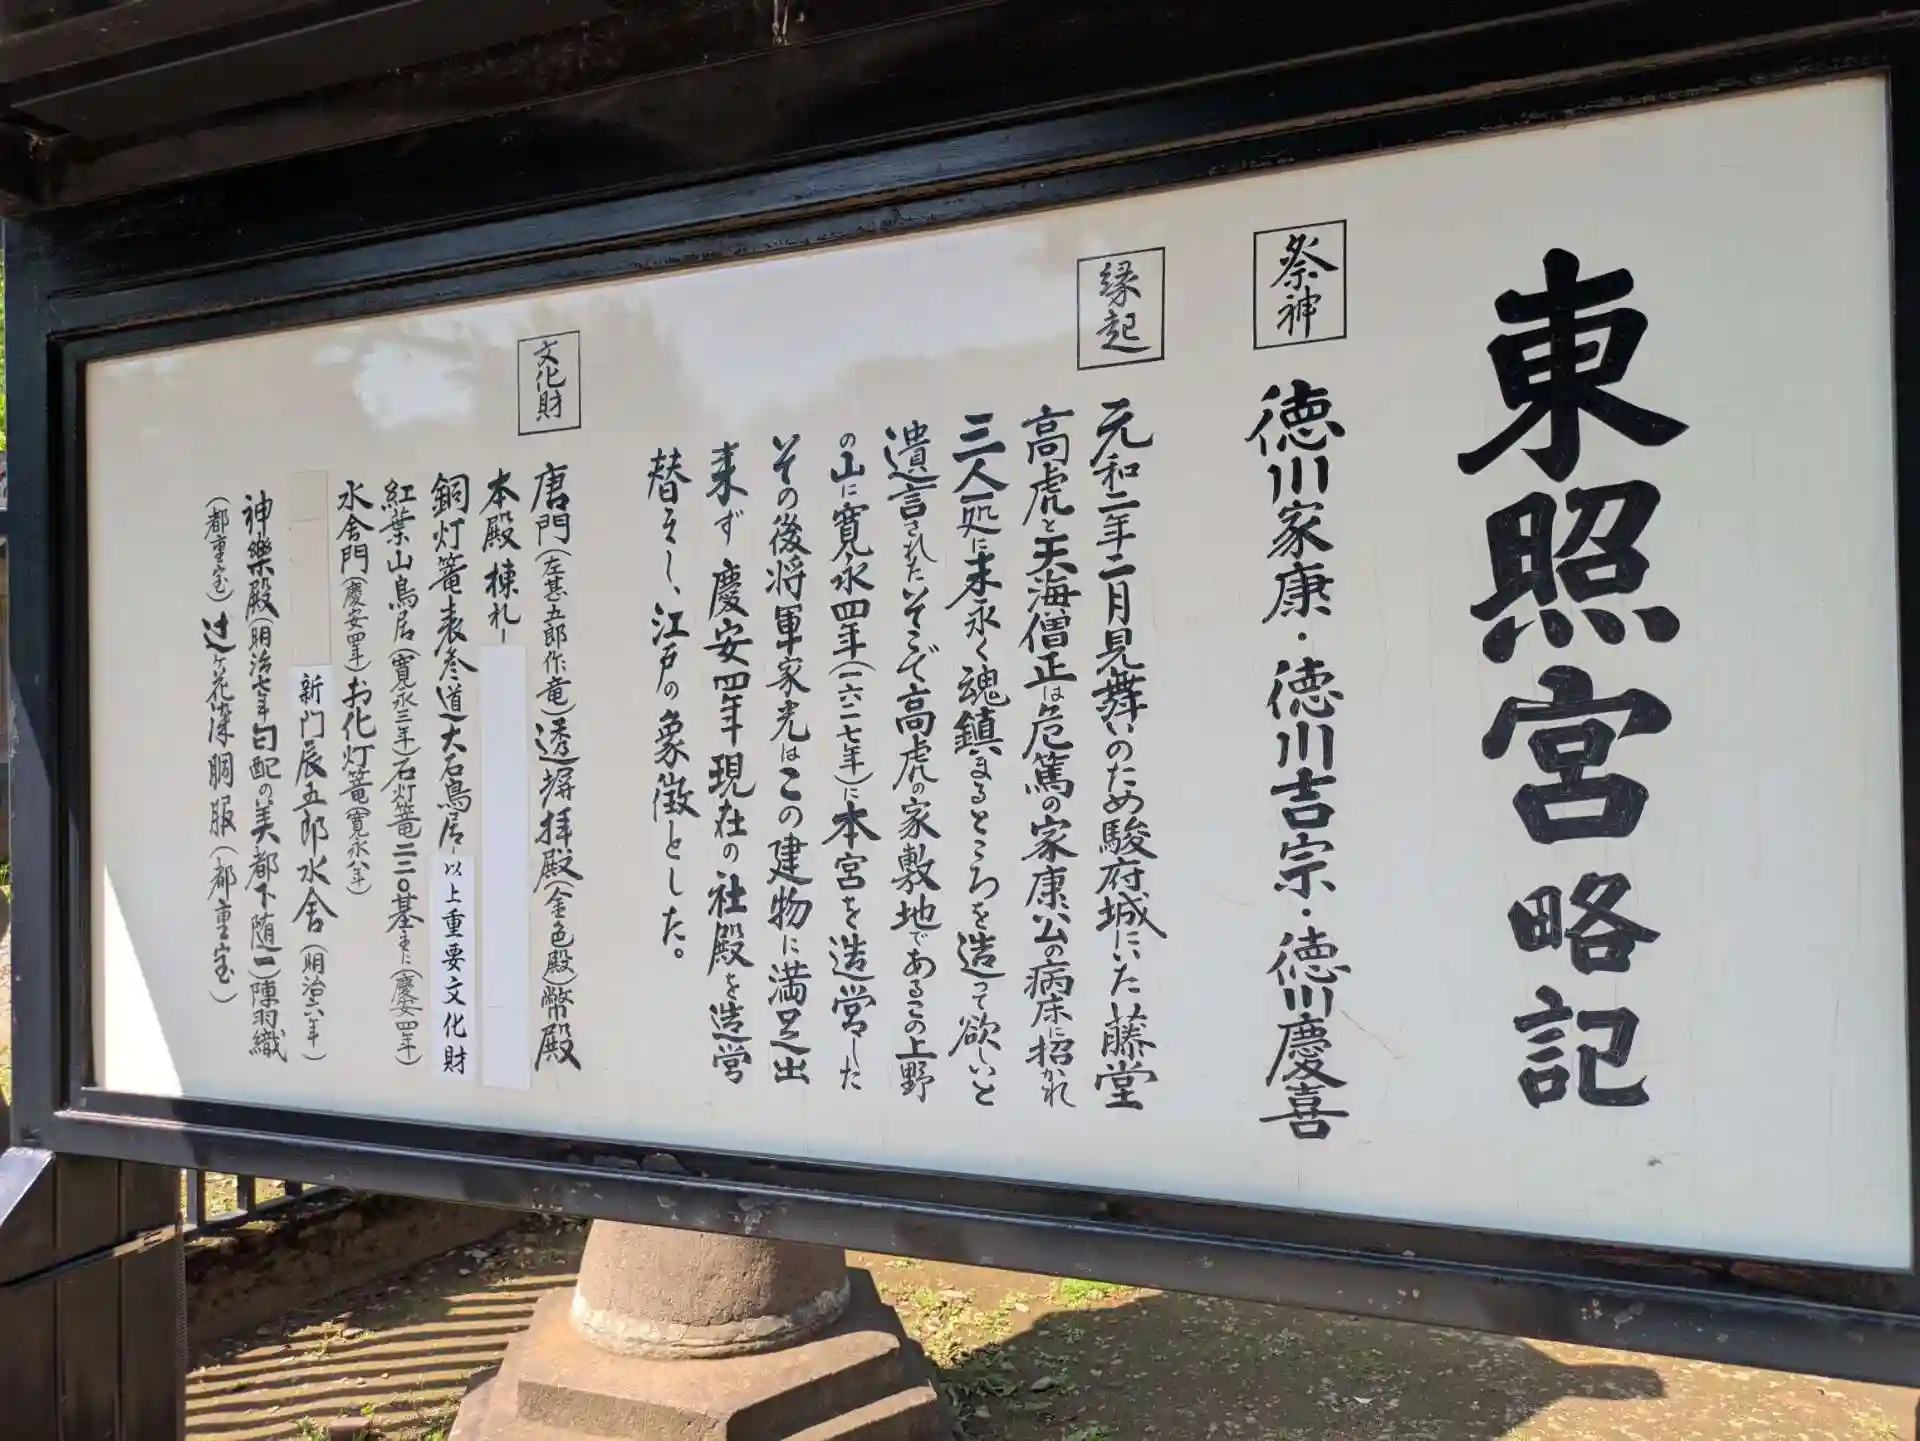 東照宮略記
祭神
徳川家康・徳川吉宗・徳川慶喜
縁起
元和二年二月見舞いのため駿府城にいた藤堂
高虎と天海僧正は危篤の家康公の病床に招かれ
三人一処に末永く魂鎮まるところを造って欲しいと
遺言されたそこで高虎の家敷地であるこの上野
の山に寛永四年(一六二七年)に本宮を造営した
その後将軍家光はこの建物に満足出
来ず慶安四年現在の社殿を造営
替えし、江戸の象徴とした。
文化財
唐門(左甚五郎作竜)透塀拝殿(金色殿)幣殿
本殿棟札
銅灯篭表参道大石鳥居以上重要文化財
紅葉山鳥居(寛永三年)石灯篭二二〇基主に(慶安四年)
水舎門(慶安四年)お化灯篭(寛永八年)
新門辰五郎水舎(明治六年)
神樂殿(明治七年匂配の美都下随一)陣羽織
(都重宝)辻ヶ花染胴服(都重宝)